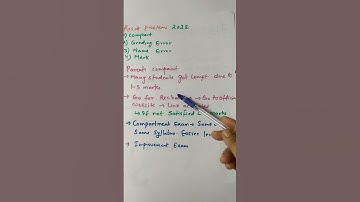 Result Problems 2022
1) Compart
2) Grading Error
3) Name Error
4) Mark
Parents compaint
→ Many students got Compt due to
1-3 marks
→ Go for Rechecking → Go to Official
website → Link
↳ If not Satisfied marks
→ Compartment Exam → Same
Same Syllabus - Easier
→ Improvement Exam